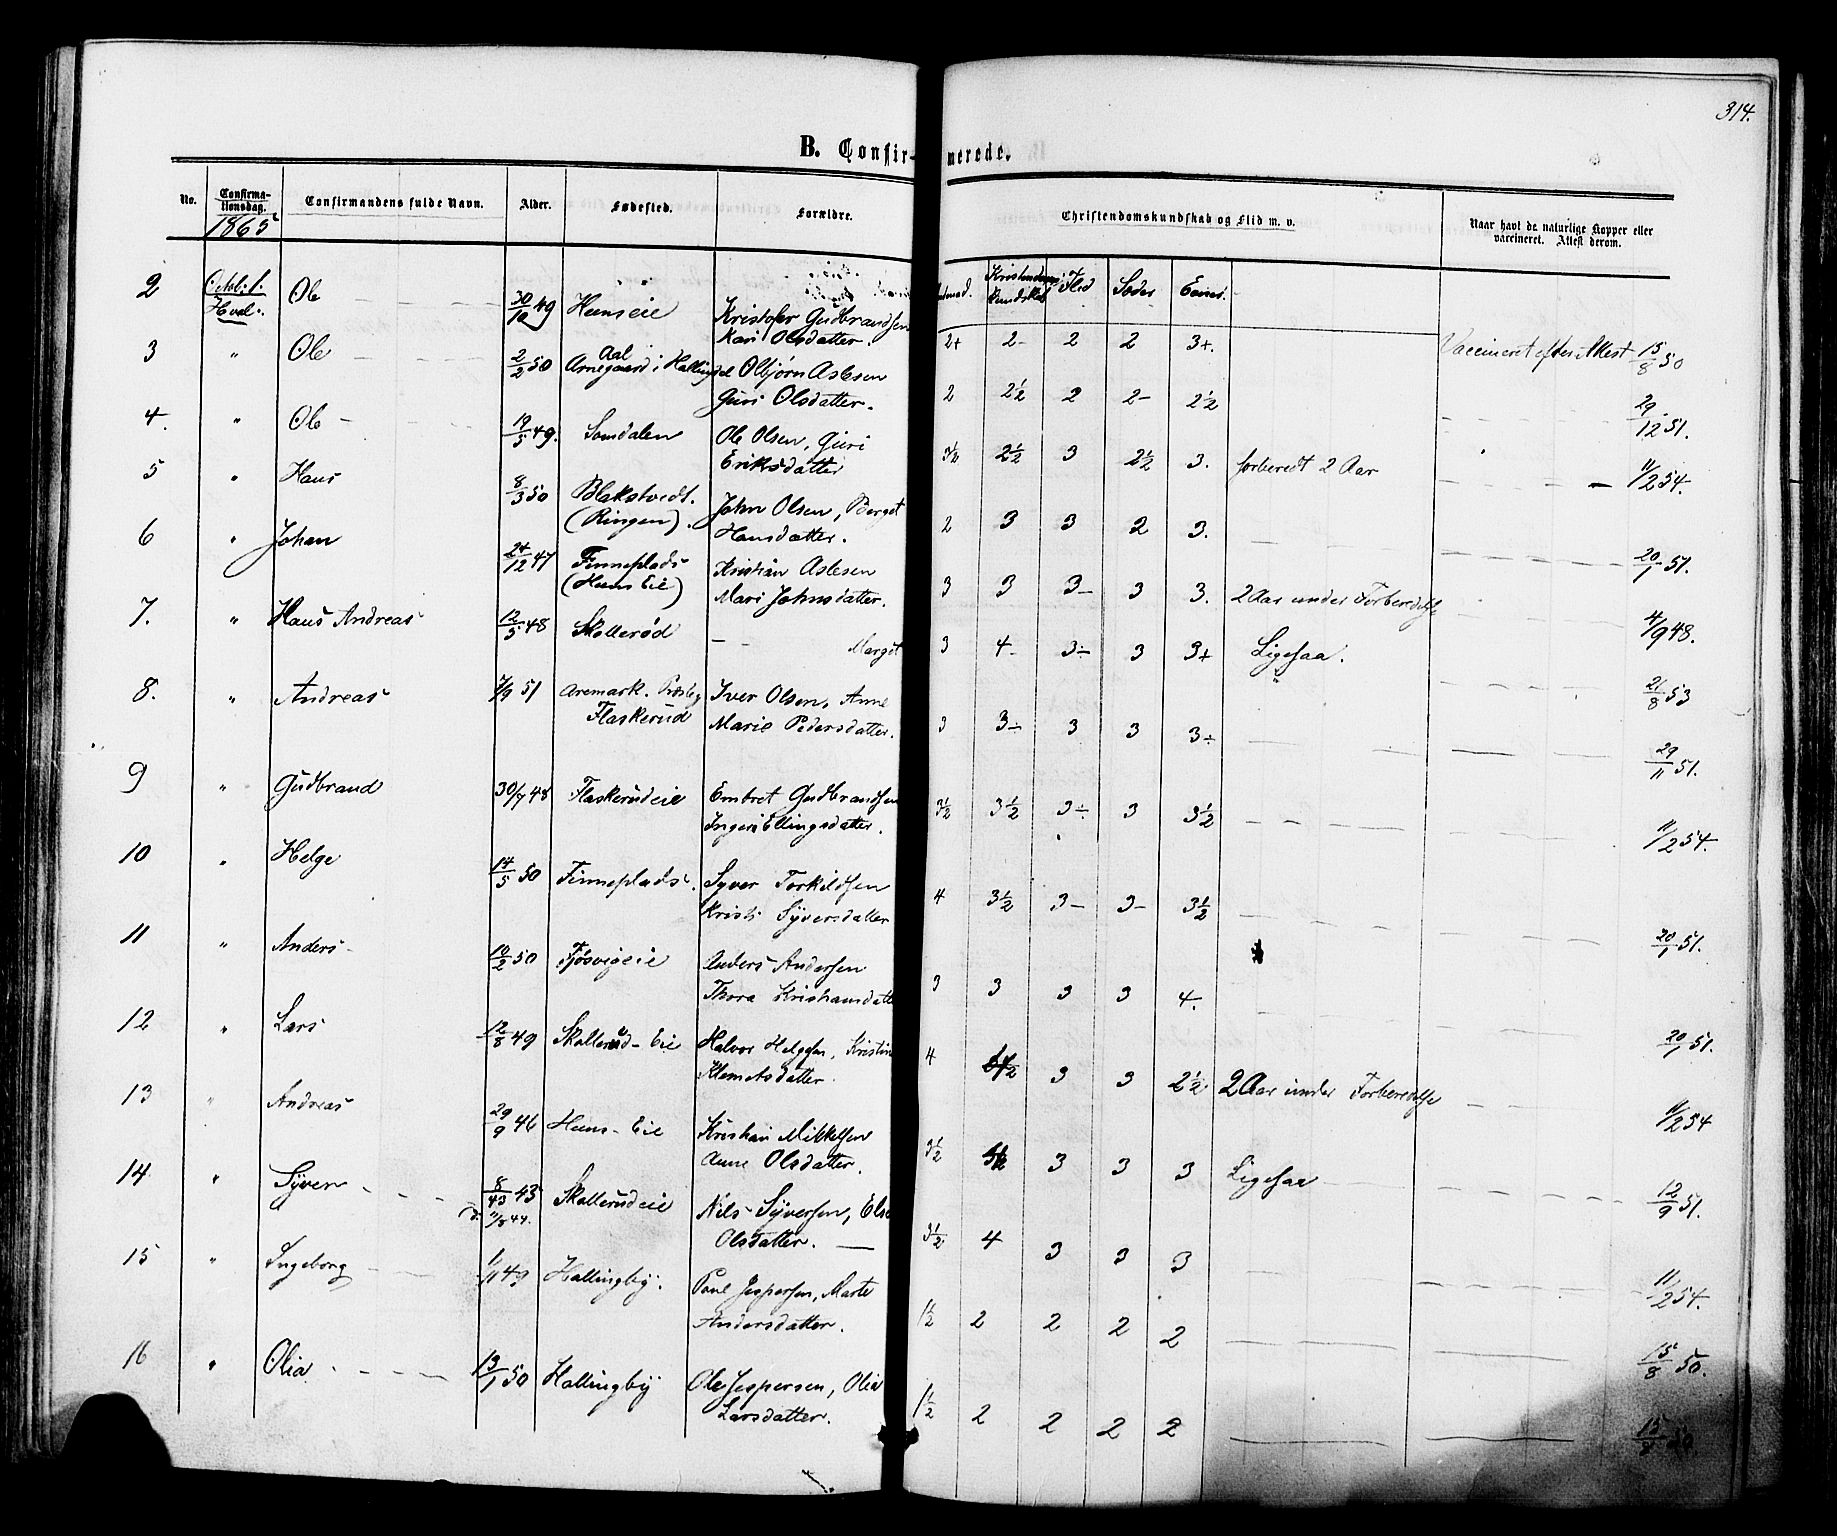 314.
B. Confirmerede.
No. Confirmationsdag. Confirmandens fulde Navn. Alder. Fødested. Forældre. Christendomskundskab og Flid m. v. Naar havt de naturlige Kopper eller vaccineret. Attest derom.
1865
Kristendoms kundskab Flid Sæder Evner
2 Octob: 1. Hval: Ole 30/10 49 Hemseie Kristofer Gudbrandsen
Kari Olsdatter. 2+ 2- 2 2 3+. Vaccineret efter Attest 15/8 50
3 " Ole 2/2 50 Aal Arnegaard i Hallingd Olbjørn Aslesen
Guri Olsdatter. 2 2½ 2 2- 2½ 29/12 51.
4. " Ole 19/5 49. Somdalen Ole Olsen, Guri
Eriksdatter 3½ 2½ 3 2½ 3. forberedt 2 Aar 11/2 54.
5 " Hans 8/3 50 Blakstvedt. John Olsen, Berget
(Ringen). Hansdatter. 2 3 3 2 3. 20/1 51.
6 " Johan 24/12 47 Finneplads Kristian Aslesen
(Hems Eie) Mari Johnsdatter. 3 3 3- 3 3. 2 Aar under Forberedelse 4/9 48.
7. " Hans Andreas 12/5 48 Skollerød — — Margit 3 4- 3- 3 3+ Ligesaa. 21/8 53
8. " Andreas 7/9 51 Aremark. Præsteg Iver Olsen, Anne
Flaskerud Marie Pedersdatter. 3 3- 3 3 3÷ 29/11 51.
9 " Gudbrand 30/7 48 Flaskerudeie Embret Gudbrandsen
Ingeri Ellingsdatter. 3½ 3½ 3÷ 3 3½ 11/2 54.
10 " Helge 14/5 50 Finneplads. Syver Torkildsen
Kristi Syversdatter 4 3½ 3- 3- 3½ 20/1 51.
11 " Anders 10/2 50 Fjøsvigeie Anders Andersen
Thora Kristiansdatt 3 3 3 3 4. 20/1 51.
12 " Lars 12/8 49 Skollerud- Eie Halvor Helgesen, Kristin
Klemetsdatter. 4 3 3 2½ 2 Aar under Forberedelse 11/2 54
13 " Andreas 29/9 46 Hems- Eie Kristian Mikkelsen
Anne Olsdatter. 3½ 3 3 3 Ligesaa 12/9 51.
14 " Syver 8/43 43 Skollerudeie Nils Syversen, Else
Olsdatter. 3½ 4 3 3 3 11/2 54.
15 " Ingeborg 1/11 49 Hallingby. Paul Jespersen, Marte
Andersdatter. 1½ 2 2 2 2 15/8 50.
16 " Olia 13/1 50 Hallingby Ole Jespersen, Olia
Larsdatter. 1½ 2 2 2 2 15/8 50